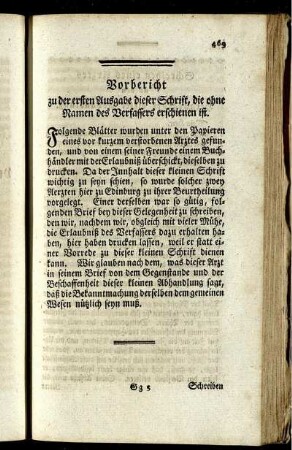 469
Vorbericht
zu der ersten Ausgabe dieser Schrift, die ohne
Namen des Verfassers erschienen ist.
Folgende Blätter wurden unter den Papieren
eines vor kurzem verstorbenen Arztes gefun-
den, und von einem seiner Freunde einem Buch-
händler mit der Erlaubniß überschickt, dieselben zu
drucken. Da der Innhalt dieser kleinen Schrift
wichtig zu seyn schien, so wurde solcher zwey
Aerzten hier zu Edinburg zu ihrer Beurtheilung
vorgelegt. Einer derselben war so gütig, fol-
genden Brief bey dieser Gelegenheit zu schreiben,
den wir, nachdem wir, obgleich mit vieler Mühe,
die Erlaubniß des Verfassers dazu erhalten ha-
ben, hier haben drucken lassen, weil er statt ei-
ner Vorrede zu dieser kleinen Schrift dienen
kann. Wir glauben nach dem, was dieser Arzt
in seinem Brief von dem Gegenstande und der
Beschaffenheit dieser kleinen Abhandlung sagt,
daß die Bekanntmachung derselben dem gemeinen
Wesen nützlich seyn muß.
Gg 5 Schreiben